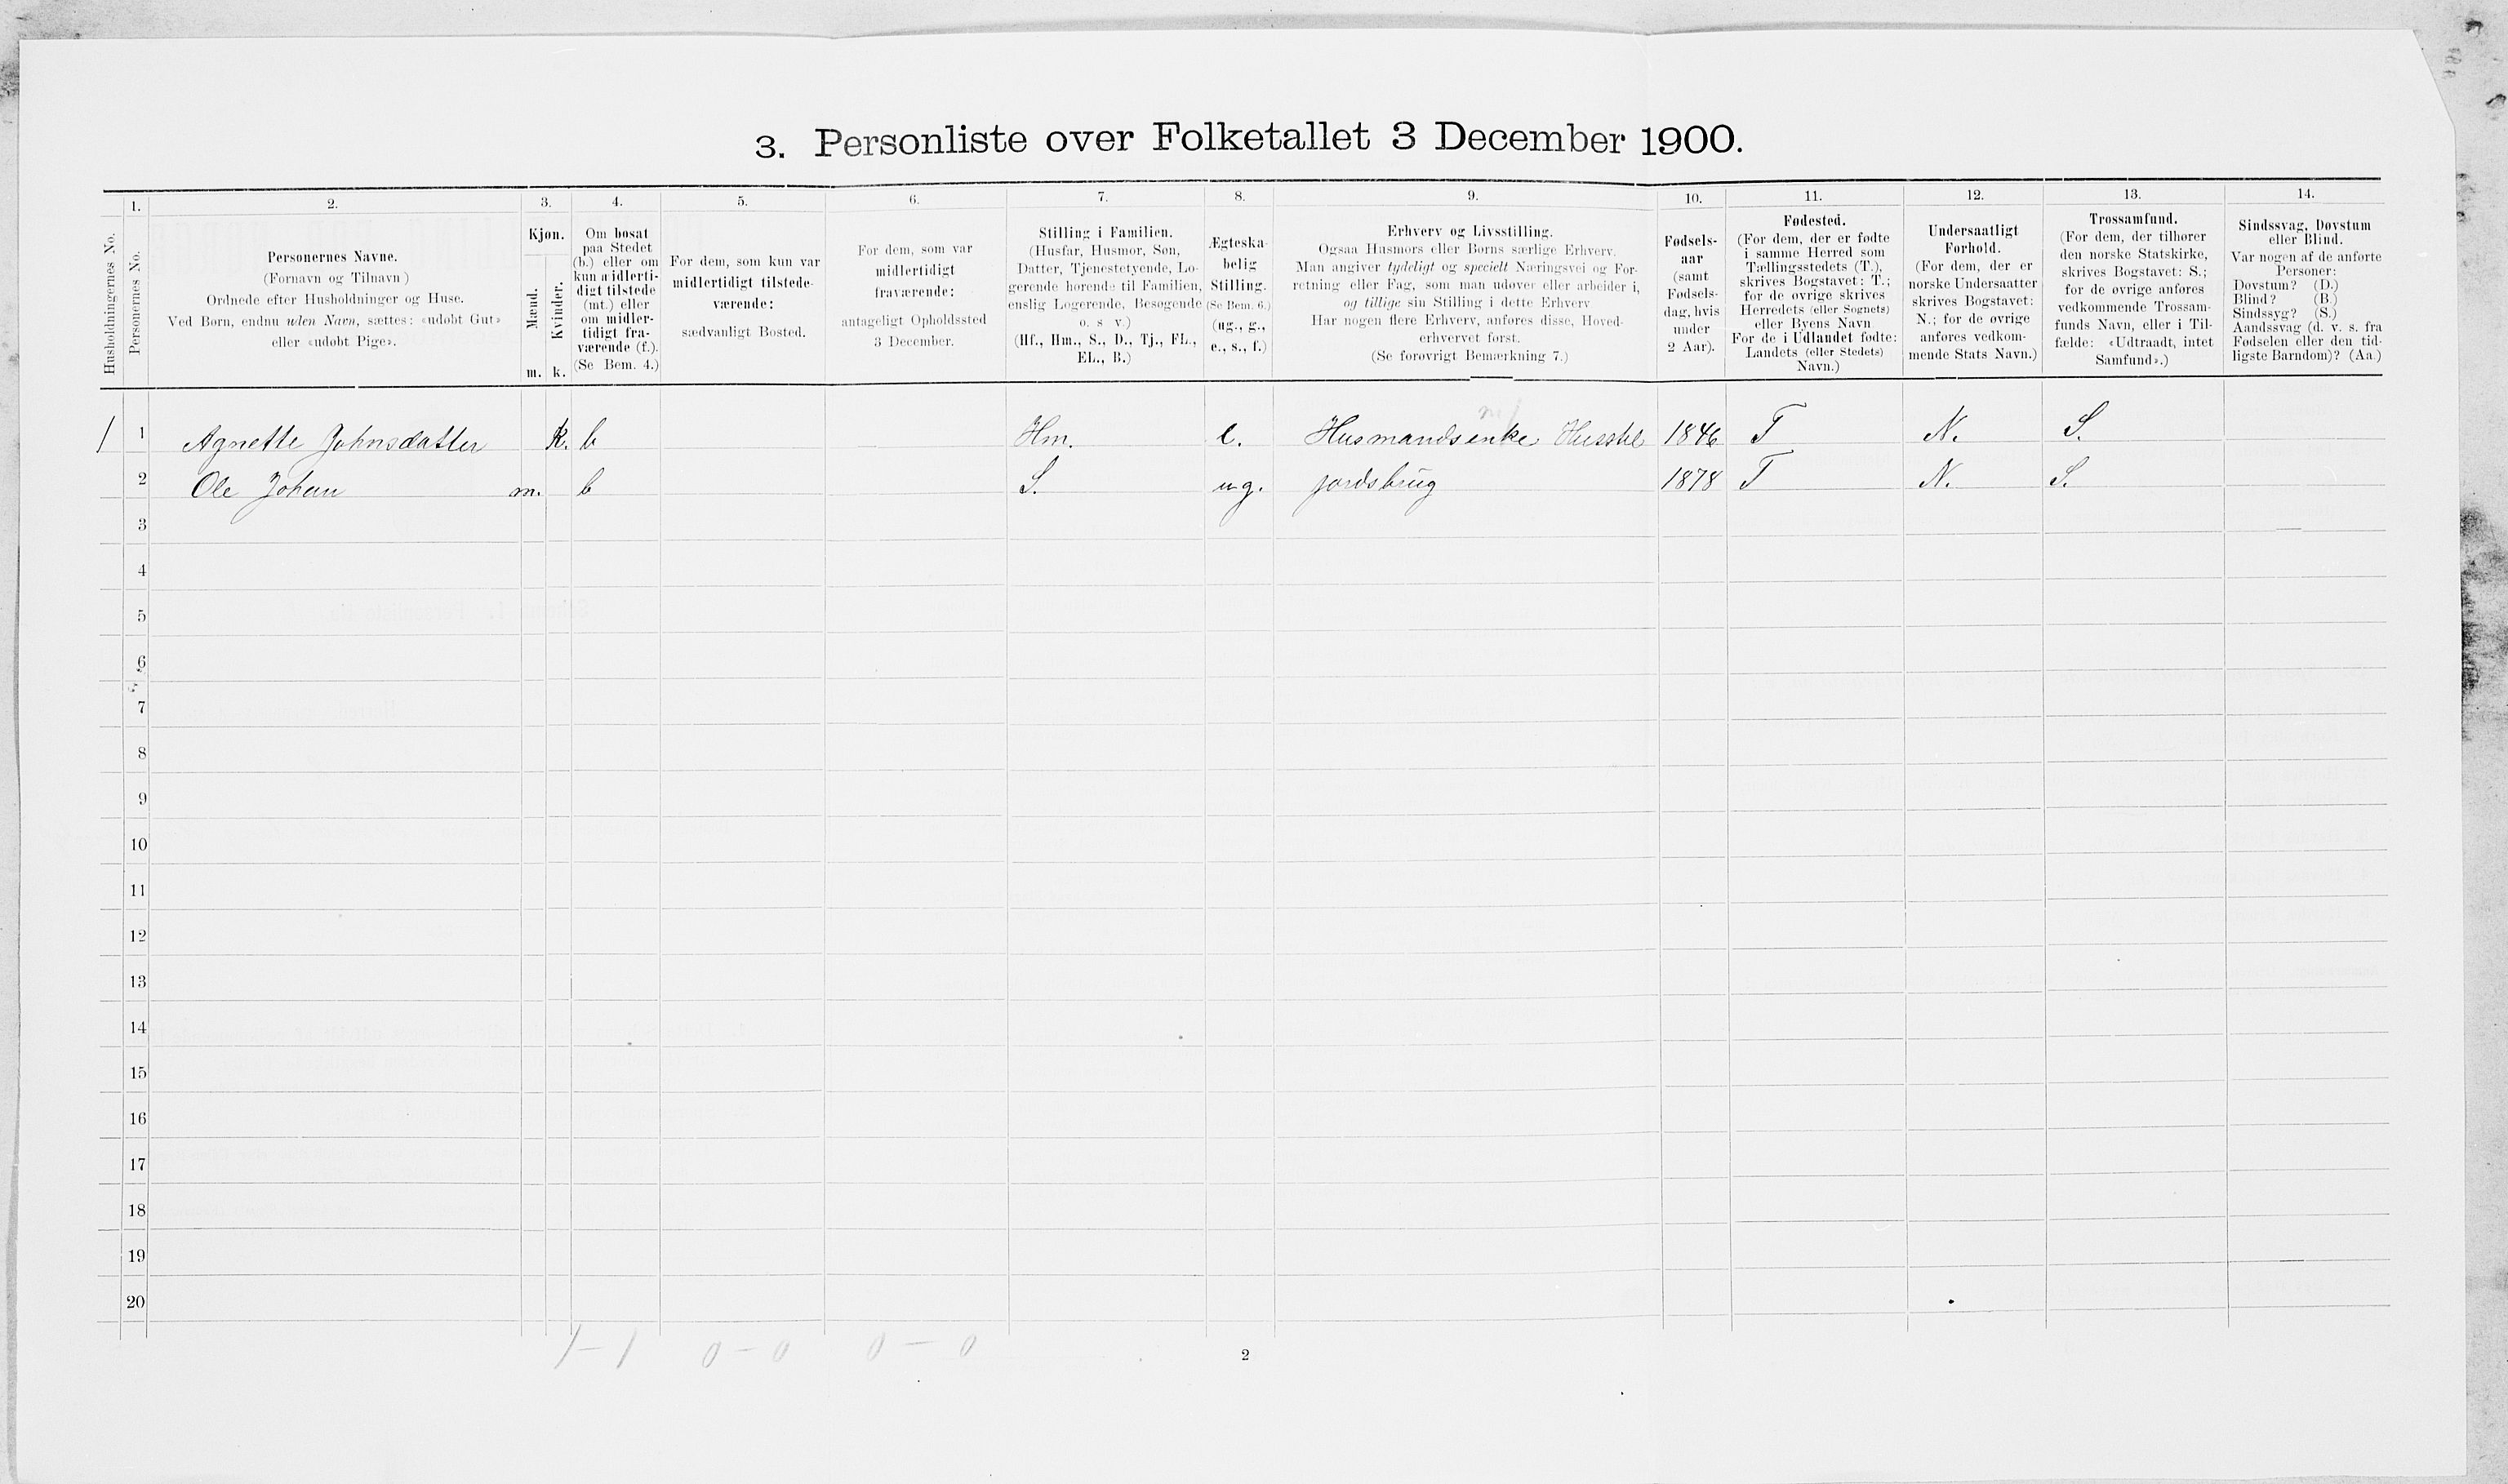 3. Personliste over Folketallet 3 December 1900.
1. 2. 3. 4. 5. 6. 7. 8. 9. 10. 11. 12. 13. 14.
Husholdningernes No.
Personernes No.
Personernes Navne.
(Fornavn og Tilnavn)
Ordnede efter Husholdninger og Huse.
Ved Børn, endnu uden Navn, sættes: «udøbt Gut»
eller «udøbt Pige».
Kjøn.
Mænd.
Kvinder.
m. k.
Om bosat
paa Stedet
(b.) eller om
kun midlerti-
digt tilstede
(mt.) eller
om midler-
tidigt fra-
værende (f.).
(Se Bem. 4.)
For dem, som kun var
midlertidigt tilstede-
værende:
sædvanligt Bosted.
For dem, som var
midlertidigt
fraværende:
antageligt Opholdssted
3 December.
Stilling i Familien.
(Husfar, Husmor, Søn,
Datter, Tjenestetyende, Lo-
gerende hørende til Familien,
enslig Logerende, Besøgende
o. s v.)
(Hf., Hm., S., D., Tj., FL.,
EL., B.)
Ægteska-
belig
Stilling.
(Se Bem. 6.)
(ug., g.,
e., s., f.)
Erhverv og Livsstilling.
Ogsaa Husmors eller Børns særlige Erhverv.
Man angiver tydeligt og specielt Næringsvei og For-
retning eller Fag, som man udøver eller arbeider i,
og tillige sin Stilling i dette Erhverv
Har nogen flere Erhverv, anføres disse, Hoved-
erhvervet først.
(Se forøvrigt Bemærkning 7.)
Fødsels-
aar
(samt
Fødsels-
dag, hvis
under
2 Aar).
Fødested.
(For dem, der er fødte
i samme Herred som
Tællingsstedets (T.),
skrives Bogstavet: T.;
for de øvrige skrives
Herredets (eller Sognets)
eller Byens Navn
For de i Udlandet fødte:
Landets (eller Stedets)
Navn.)
Undersaatligt
Forhold.
(For dem, der er
norske Undersaatter
skrives Bogstavet:
N.; for de øvrige
anføres vedkom-
mende Stats Navn.)
Trossamfund.
(For dem, der tilhører
den norske Statskirke,
skrives Bogstavet: S.;
for de øvrige anføres
vedkommende Trossam-
funds Navn, eller i Til-
fælde: «Udtraadt, intet
Samfund».)
Sindssvag, Døvstum
eller Blind.
Var nogen af de anførte
Personer:
Døvstum? (D.)
Blind? (B.)
Sindssyg? (S.)
Aandssvag (d. v. s. fra
Fødselen eller den tid-
ligste Barndom)? (Aa.)
1 1 Agnette Johnsdatter k. b Hm. e. Husmandsenke Husstel 1846 T N. S.
2 Ole Johan m. b S. ug. jordsbrug 1878 T N. S.
3
4
5
6
7
8
9
10
11
12
13
14
15
16
17
18
19
20
1 – 1 0 – 0 0 – 0
2